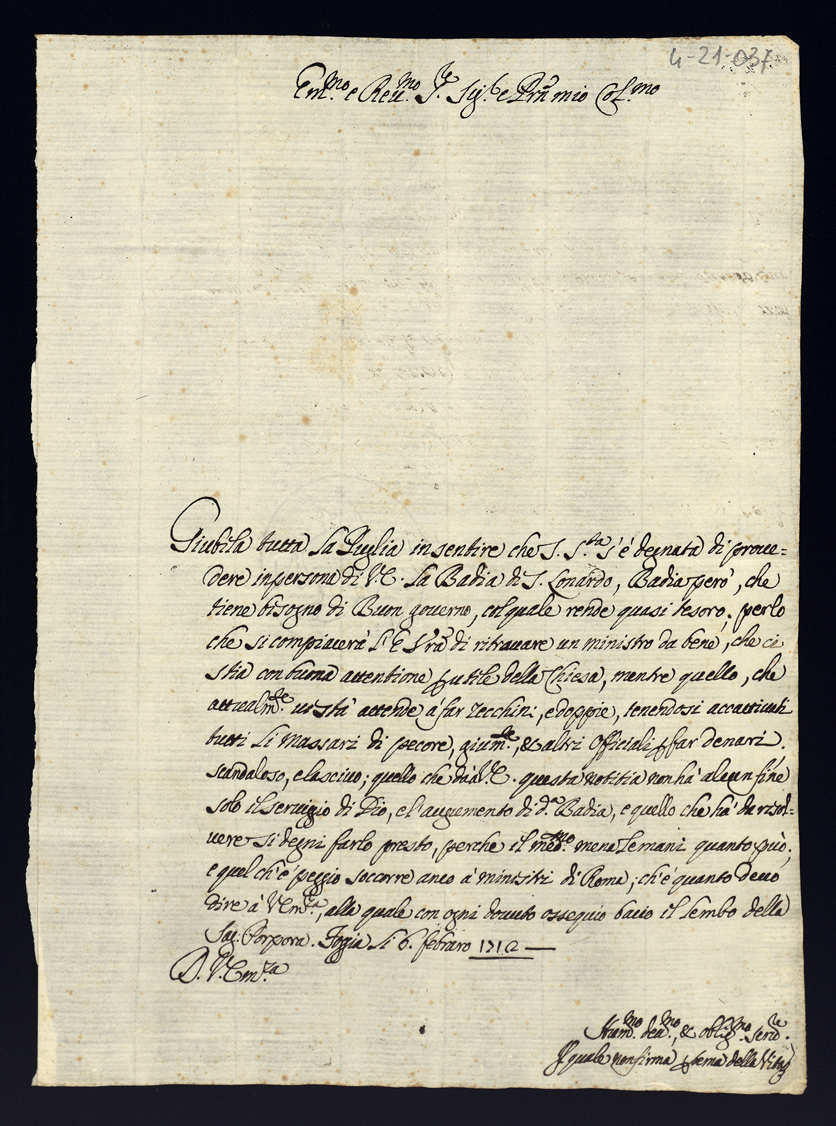 4-21-037
Em.mo e Reu.mo S.re Sig.r e Prñ mio Col.mo
Giubila tutta la Puglia in sentire che S. S.ta s'è degnata di proue=
dere in persona di V.E. la Badia di S. Lonardo, Badia però, che
tiene bisogno di Buon gouerno, col quale rende quasi tesoro; perlo
che si compiacerà l'E. Vrã di ritrouare un ministro da bene, che ci
stia con buona attentione, & utile della Chiesa, mentre quello, che
attualm.te vi stà attende à far Zecchini, e doppie, tenendosi accattiuati
tutti li Massari di pecore, gium.te, & altri Officiali p far denari.
scandaloso, e lasciuo; quello che dà à V.E. questa notitia non hà alcun fine
solo il seruigio di Dio, e l'augumento di d.a Badia, e quello che hà da risol=
uere si degni farlo presto, perche il med.mo mena le mani quanto può;
e quel ch'è peggio soccorre anco à ministri di Roma; ch'è quanto deuo
dire à V.Em.za, alla quale con ogni douuto ossequio bacio il lembo della
Sag. Porpora. Fogia li 6. febraro 1712
D. V. Em.za
Hum.mo deu.mo, & oblig.mo seru.re
Il quale non firma p tema della Vita